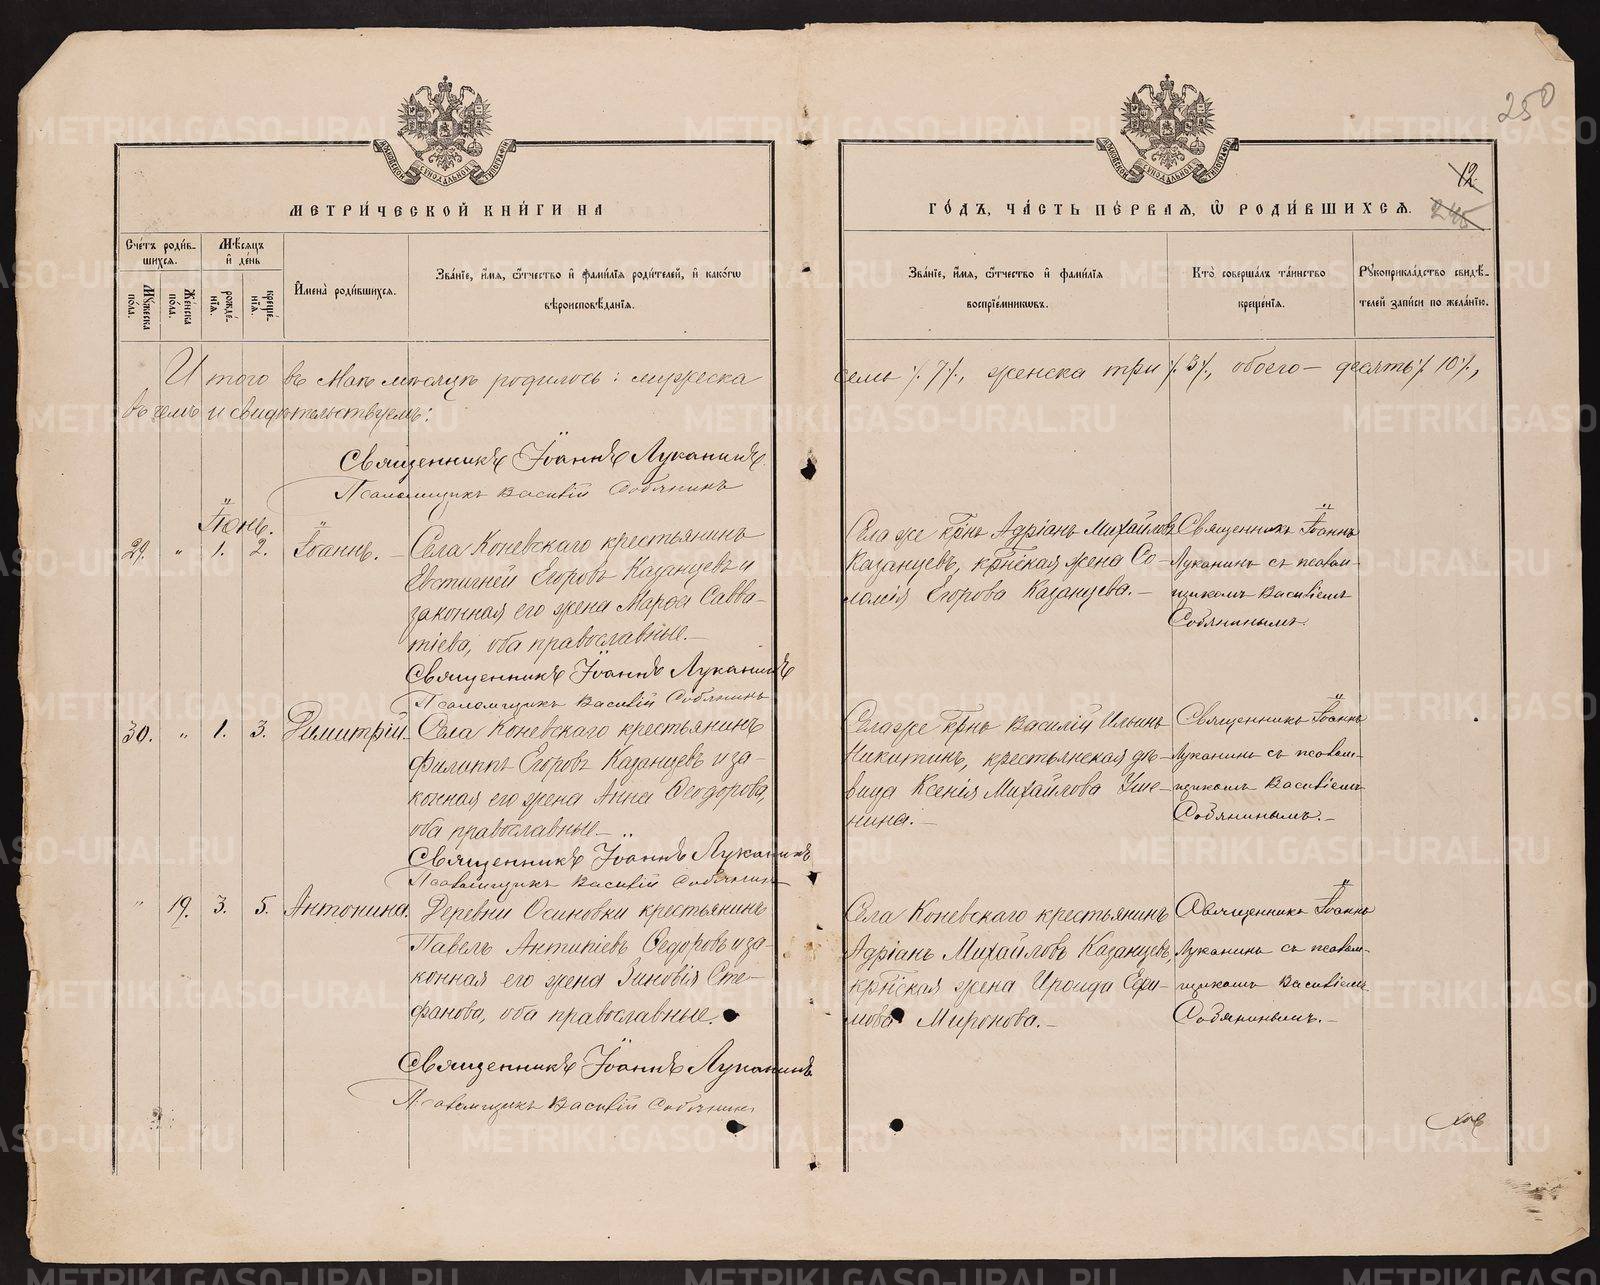 250
12
245
МЕТРИ́ЧЕСКОЙ КНИ́ГИ НА
ГО́ДЪ, ЧА́СТЬ ПЕ́РВАЯ, Ѿ РОДИ́ВШИХСЯ.
Сче́тъ роди́в-
шихся.
Мѣ́сяцъ
и҆ де́нь
Му́жеска
по́ла.
Же́нска
по́ла.
рожде́-
нїѧ.
креще́-
нїѧ.
И҆мена̀ роди́вшихся.
Зва́нїе, и҆́мя, ѻ҆́тчество и҆ фами́лїѧ роди́телей, и҆ како́гѡ
вѣроисповѣ́данїѧ.
Зва́нїе, и҆́мя, ѻ҆́тчество и҆ фами́лїѧ
воспрїе́мникѡвъ.
Кто̀ соверша́лъ та́инство
креще́нїѧ.
Рꙋкоприкла́дство свидѣ́-
телей за́писи по жела́нїю.
Итого въ Маѣ мѣсяцѣ родилось: мужеска
семь ٪ 7 ٪, женска три ٪ 3 ٪, обоего — десять ٪ 10 ٪,
въ чемъ и свидѣтельствуемъ:
Священникъ Іоаннъ Луканинъ
Псаломщикъ Василій Собянинъ
Іюнь.
29. " 1. 2. Іоаннъ. — Села Коневскаго крестьянинъ
Евстигней Егоровъ Казанцевъ и
законная его жена Марѳа Савва-
тіева, оба православные. —
Священникъ Іоаннъ Луканинъ
Псаломщикъ Василій Собянинъ
Села же крнъ Адріанъ Михайловъ
Казанцевъ, крнская жена Со-
ломія Егорова Казанцева. —
Священникъ Іоаннъ
Луканинъ съ псалом-
щикомъ Василіемъ
Собянинымъ.
30. " 1. 3. Димитрій. Села Коневскаго крестьянинъ
Филиппъ Егоровъ Казанцевъ и за-
конная его жена Анна Ѳеодорова,
оба православные —
Священникъ Іоаннъ Луканинъ
Псаломщикъ Василій Собянинъ
Села же крнъ Василій Ильинъ
Никитинъ, крестьянская дѣ-
вица Ксенія Михайлова Уше-
нина. —
Священникъ Іоаннъ
Луканинъ съ псалом-
щикомъ Василіемъ
Собянинымъ. —
" 19. 3. 5. Антонина. Деревни Осиновки крестьянинъ
Павелъ Антипіевъ Ѳедоровъ и за-
конная его жена Зиновія Сте-
фанова, оба православные.
Священникъ Іоаннъ Луканинъ
Псаломщикъ Василій Собянинъ
Села Коневскаго крестьянинъ
Адріанъ Михайловъ Казанцевъ,
крнская жена Ироида Ефи-
мова Миронова. —
Священникъ Іоаннъ
Луканинъ съ псалом-
щикомъ Василіемъ
Собянинымъ. —
METRIKI.GASO-URAL.RU